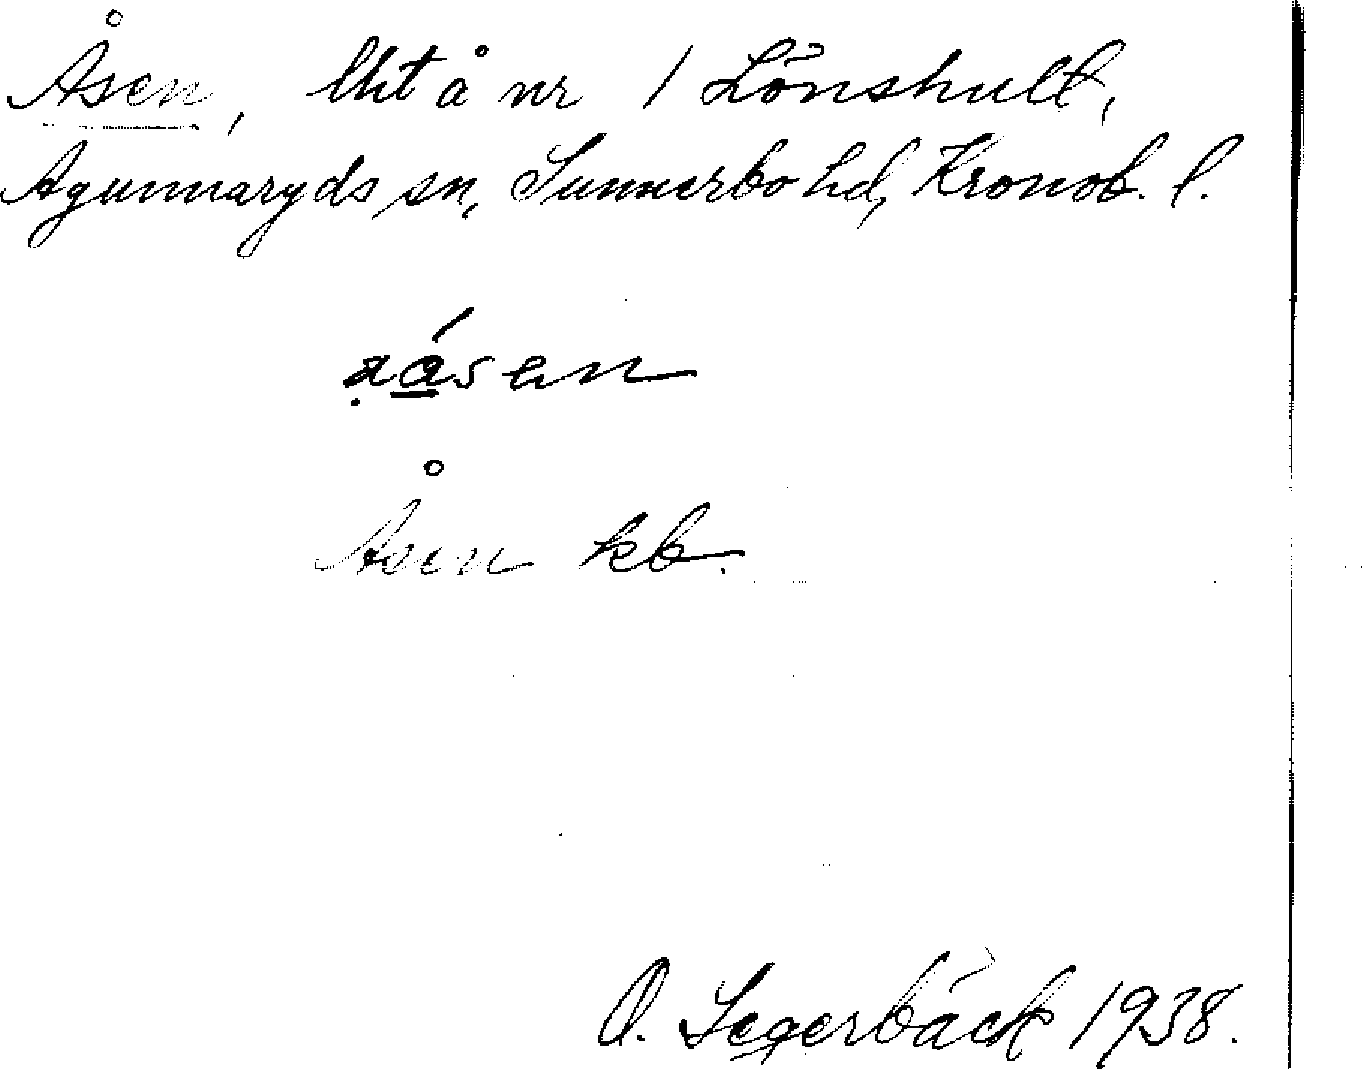 Åsen, lht å nr 1 Lönshult,
Agunnaryds sn, Sunnerbo hd, Kronob. l.
Åsen kb.
O. Segerbäck 1938.